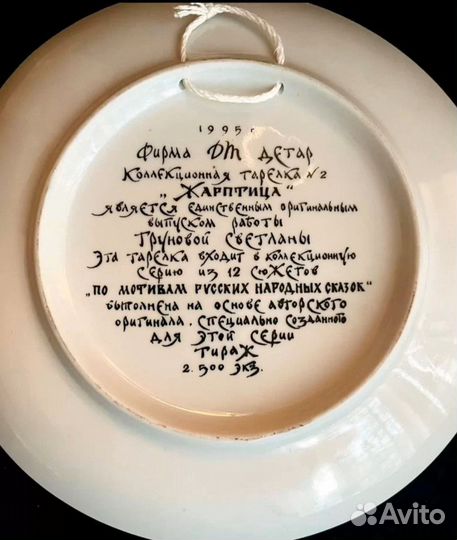 1995 г
Фирма ДТ Детар
Коллекционная тарелка №2
„Жарптица“
является единственным оригинальным
выпуском работы
Труновой Светланы
Эта тарелка входит в коллекционную
серию из 12 сюжетов
„По мотивам русских народных сказок“
выполнена на основе авторского
оригинала. Специально созданного
для этой серии
Тираж
2.500 экз.
Avito